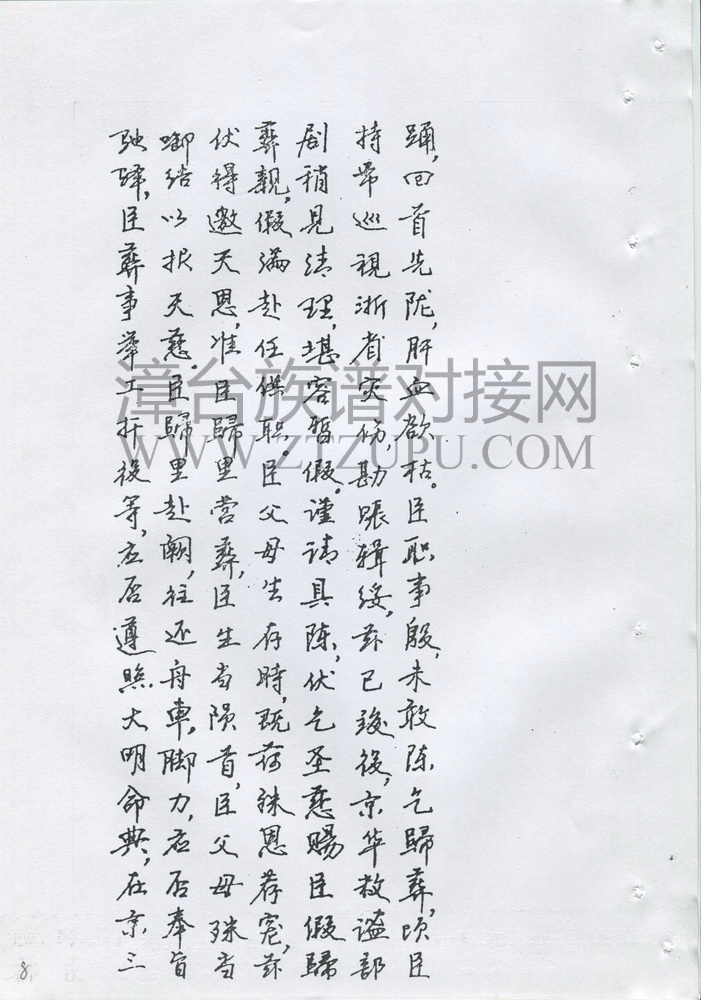 踊，回首先陇，肝血欲枯。臣职事殷，未敢陈乞歸葬，顷臣
持斧巡視浙省灾伤，勘賑辑绥，兹已竣役，京华救谧部
剧稍見清理，堪容暂假。谨请具陈，伏乞圣慈赐臣假歸
葬親，假滿赴任供职。臣父母生存時，既荷殊恩荐宠，兹
伏得邀天恩，准臣歸里营葬，臣生当陨首，臣父母殊当
啣结以报天慈。臣歸里赴朝，往还舟車，脚力，应否奉旨
驰驿，臣葬事举工扦役等，应否遵照大明命典，在京三
漳台族谱对接网
WWW.ZTZUPU.COM
8